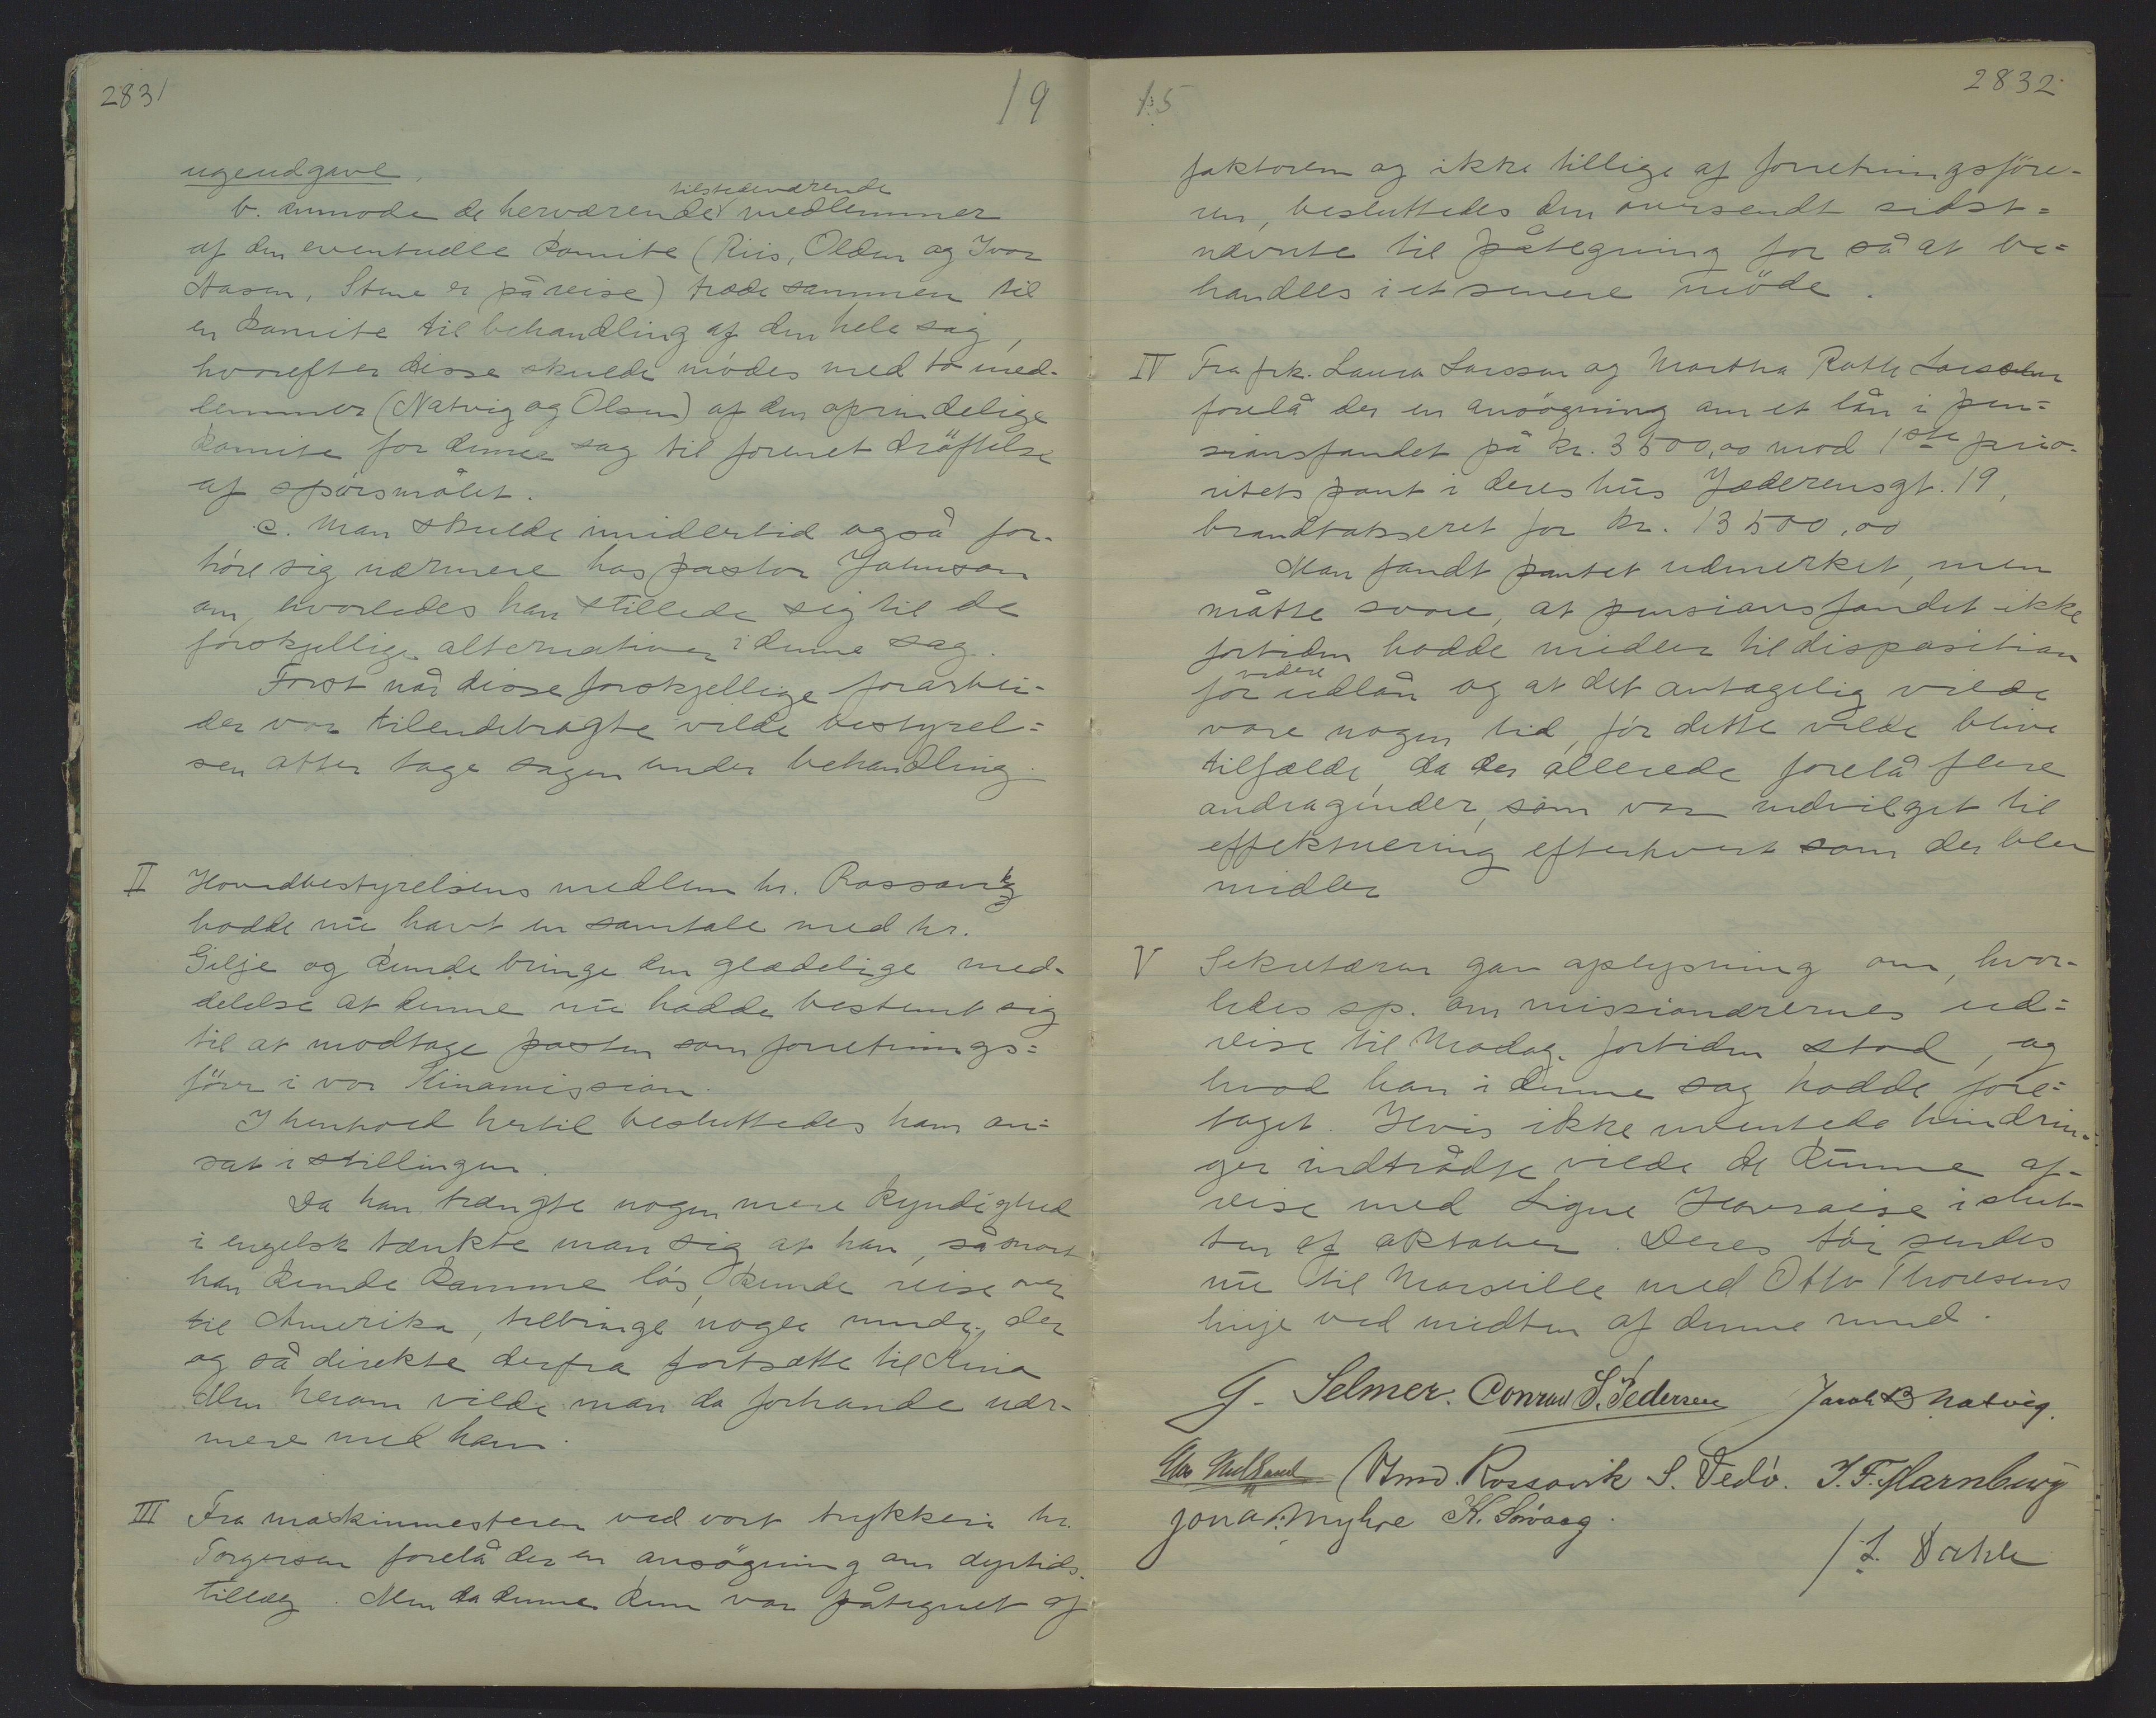 2831
19
ugeudgave.
b. anmode de herværende tilstedeværende medlemmer
af den eventuelle komite (Riis, Olden og Ivar
Aasen, Stene er på reise) træde sammen til
en komite til behandling af den hele sag,
hvorefter disse skulde mødes med to med-
lemmer (Natvig og Olsen) af den oprindelige
komite for denne sag til forenet drøftelse
af spørsmålet.
c. Man skulde imidlertid også for-
høre sig nærmere hos pastor Johnson
om, hvorledes han stillede sig til de
forskjellige alternativer i denne sag.
Først når disse forskjellige forarbei-
der var tilendebragte vilde bestyrel=
sen atter tage sagen under behandling.
II Hovedbestyrelsens medlem hr. Rossavik
hadde nu havt en samtale med hr.
Gilje og kunde bringe den glædelige med-
delelse at denne nu hadde bestemt sig
til at modtage posten som forretnings=
fører i vor Kinamission.
I henhold hertil besluttedes ham an=
sat i stillingen.
Da han trængte nogen mere kyndighed
i engelsk tænkte man sig at han, så snart
han kunde komme løs, kunde reise over
til Amerika, tilbringe nogle mndr. der
og så direkte derfra fortsætte til Kina
Men herom vilde man da forhandle nær-
mere med ham.
III Fra maskinmesteren ved vort trykkeri hr.
Torgersen forelå der en ansøgning om dyrtids-
tillæg. Men da denne kun var påtegnet af
15
2832
faktoren og ikke tillige af forretningsføre-
ren, besluttedes den oversendt sidst=
nævnte til påtegning for så at be=
handles i et senere møde.
IV Fra frk. Laura Larssen og Martha Rath Larssen
forelå der en ansøgning om et lån i pen=
sionsfondet på kr. 3500,00 mod 1ste prio-
ritets pant i deres hus Jæderensgt. 19,
brandtakseret for kr. 13500,00
Man fandt pantet udmerket, men
måtte svare, at pensionsfondet ikke
fortiden hadde midler til disposition
for videre udlån og at det antagelig vilde
vare nogen tid, før dette vilde blive
tilfælde, da der allerede forelå flere
andragender, som var indvilget til
effektuering efterhvert som der blev
midler
V Sekretæren gav oplysning om, hvor-
ledes sp. om missionærernes ud=
reise til Madag. fortiden stod, og
hvad han i denne sag hadde fore=
taget. Hvis ikke uventede hindrin-
ger indtrådte vilde de kunne af-
reise med Ligne Havraise i slut-
ten af oktober. Deres tøi sendes
nu til Marseille med Otto Thoresens
linje ved midten af denne mnd.
G. Selmer. Conrad S. Pedersen Jacob B Natvig.
Rossavik S. Vedø. J. F. Marnburg
Jonas Myhre K. Sørvaag.
/ L. Dahle